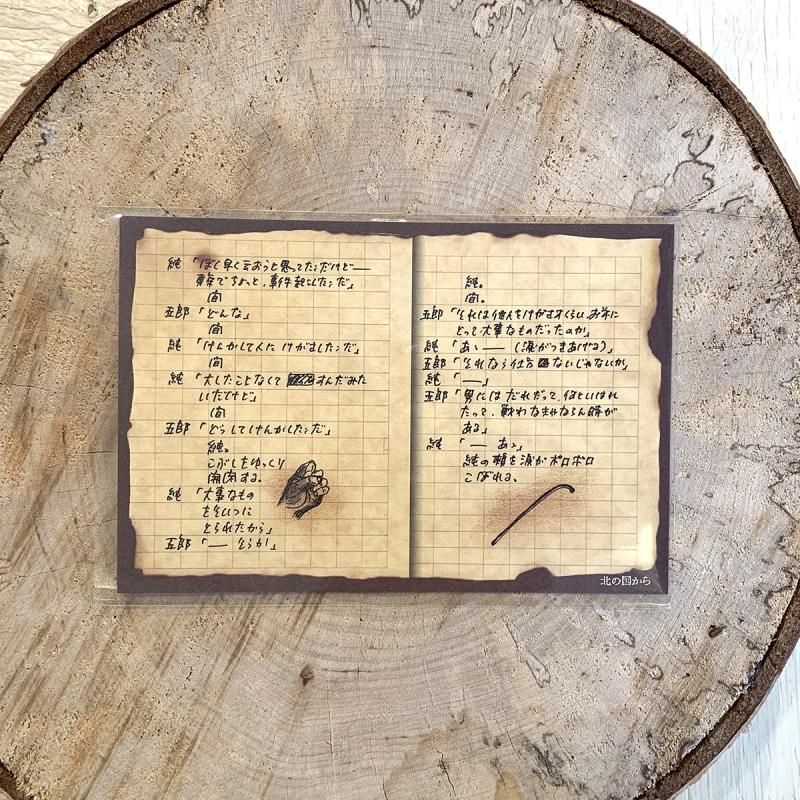 純「ぼく早く云おうと思ってたンだけど──
東京でちょっと、事件起こしたンだ」
間
五郎「どんな」
間
純「けんかして人にけがさしたンだ」
間
純「大したことなくてすんだみた
いだけど」
間
五郎「どうしてけんかしたンだ」
純。
こぶしをゆっくり
開閉する。
純「大事なもの
をそいつに
とられたから」
五郎「── そうか」
純。
間。
五郎「それは他人をけがさすくらいお前に
とって大事なものだったのか」
純「あゝ ──（涙がつきあげる）
五郎「それなら仕方ないじゃないか」
純「──」
五郎「男にはだれだって、何といはれ
たって、戦わなきゃならん時が
ある」
純「── あゝ」
純の頬を涙がポロポロ
こぼれる。
北の国から